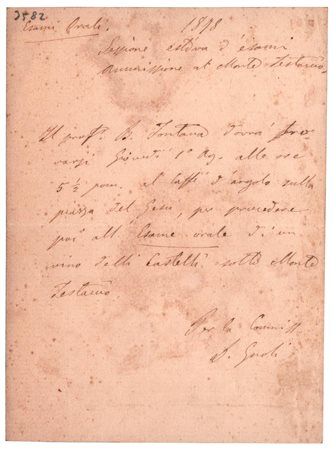 3582
Esami Orali. 1898
Sessione estiva d'esami
Ammissione al Monte Testaccio
Il prof. B. Fontana dovrà tro
varsi Giovedì 1° Ag. alle ore
5 ½ pom. al Caffè d'angolo sulla
piazza del Gesù, per procedere
poi all'Esame orale di un
vino delli Castelli sotto Monte
Testaccio
Per la Commiss
D. Gnoli